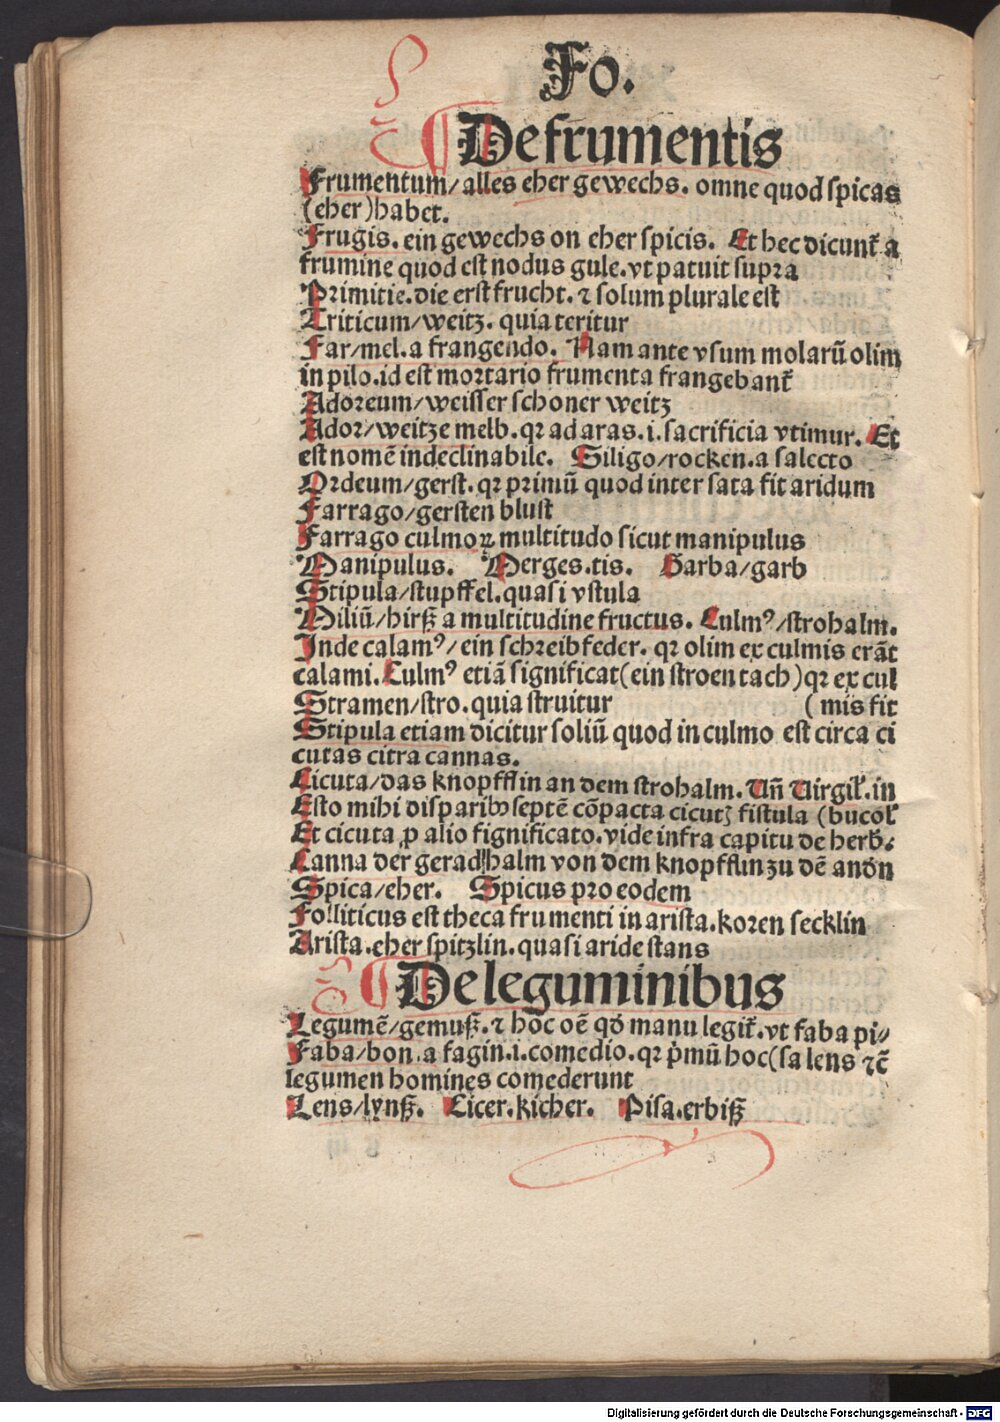 Fo.
De frumentis
Frumentum/alles eher gewechs. omne quod spicas
(eher)habet.
Frugis. ein gewechs on eher spicis. Et hec dicunt᷑ a
frumine quod est nodus gule. vt patuit supra
Primitie. die erst frucht. ⁊ solum plurale est
Triticum/weitz. quia teritur
Far/mel. a frangendo. Nam ante vsum molarū olim
in pilo. id est mortario frumenta frangebant᷑
Adoreum/weisser schoner weitz
Ador/weitze melb. qꝛ ad aras. i. sacrificia vtimur. Et
est nomē indeclinabile. Siligo/rocken. a salecto
Ordeum/gerst. qꝛ primū quod inter sata fit aridum
Farrago/gersten blust
Farrago culmoꝝ multitudo sicut manipulus
Manipulus. Merges.tis. Garba/garb
Stipula/stupffel. quasi vstula
Miliū/hirß a multitudine fructus. Culmꝰ/strohalm.
Inde calamꝰ/ein schreibfeder. qꝛ olim ex culmis erāt
calami. Culmꝰ etiā significat(ein stroen tach)qꝛ ex cul
Stramen/stro. quia struitur (mis fit
Stipula etiam dicitur foliū quod in culmo est circa ci
cutas citra cannas.
Cicuta/das knopfflin an dem strohalm. Un̄ Uirgil᷑. in
Esto mihi disparibꝰ septē cōpacta cicutꝭ fistula (bucol᷑
Et cicuta ꝓ alio significato. vide infra capitu de herb᷑.
Canna der gerad halm von dem knopfflin zu dē andn
Spica/eher. Spicus pro eodem
Folliticus est theca frumenti in arista. koren secklin
Arista. eher spitzlin. quasi aride stans
De leguminibus
Legumē/gemuß. ⁊ hoc oē qd manu legit᷑. vt faba pi⸗
Faba/bon. a fagin. i. comedio. qꝛ pͥmū hoc(sa lens ⁊c̄
legumen homines comederunt
Lens/lynß. Cicer. kicher. Pisa. erbiß
Digitalisierung gefördert durch die Deutsche Forschungsgemeinschaft - DFG